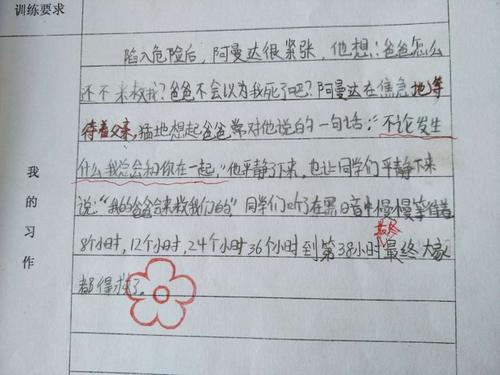 训练要求
陷入危险后，阿曼达很紧张，他想：爸爸怎么
还不来救我？爸爸不会以为我死了吧？阿曼达在焦急地等
待着父亲，猛地想起爸爸常对他说的一句话：“不论发生
什么我总会和你在一起，”他平静了下来，也让同学们平静下来
说：“我的爸爸会来救我们的”同学们听了在黑暗中慢慢等待着
8个小时，12个小时，24个小时36个小时到第38小时最终大家
最终
都得救了。
我的习作